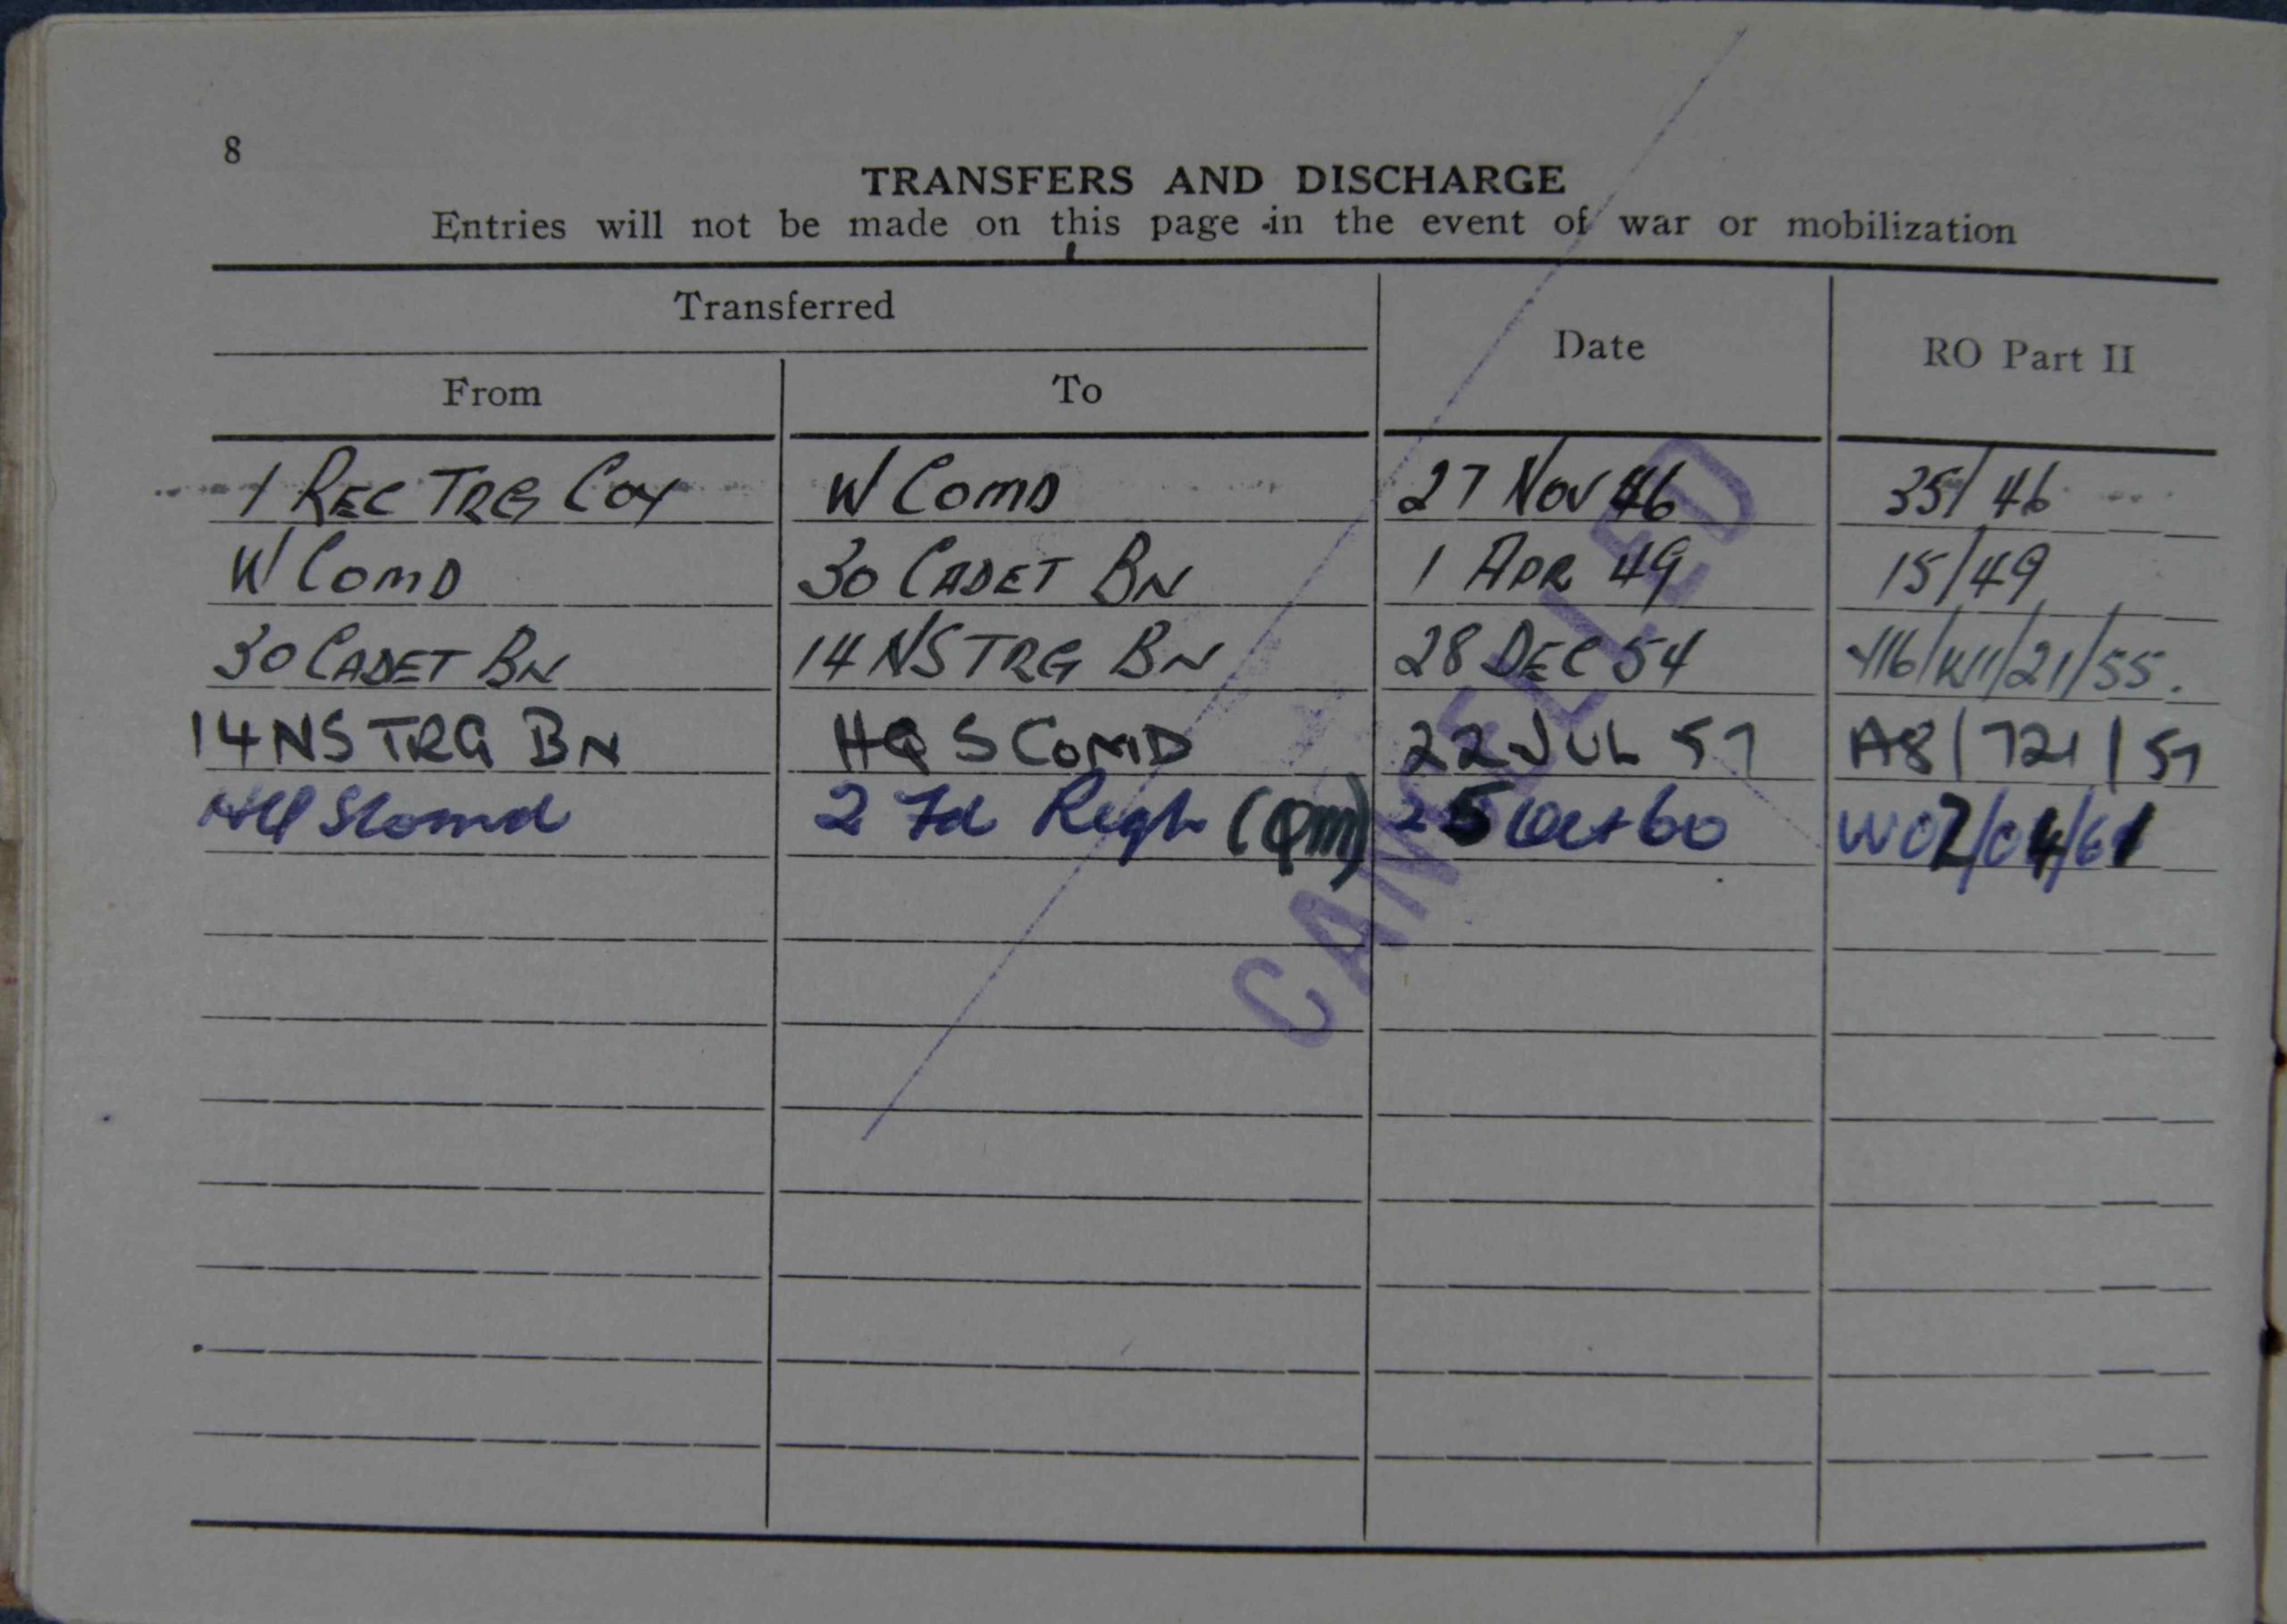 8
TRANSFERS AND DISCHARGE
Entries will not be made on this page in the event of war or mobilization
Transferred
Date
RO Part II
From
To
1 REC TRG COY W COMD 27 NOV 46 35/46
W COMD 30 CADET BN 1 APR 49 15/49
30 CADET BN 14 NS TRG BN 28 DEC 54 /21/55.
14 NS TRG BN HQ S COMD 22 JUL 57 A8/721/57
HQ S Comd 2 Fd Regt (QM) 25 Oct 60 W02/04/61
CANCELLED